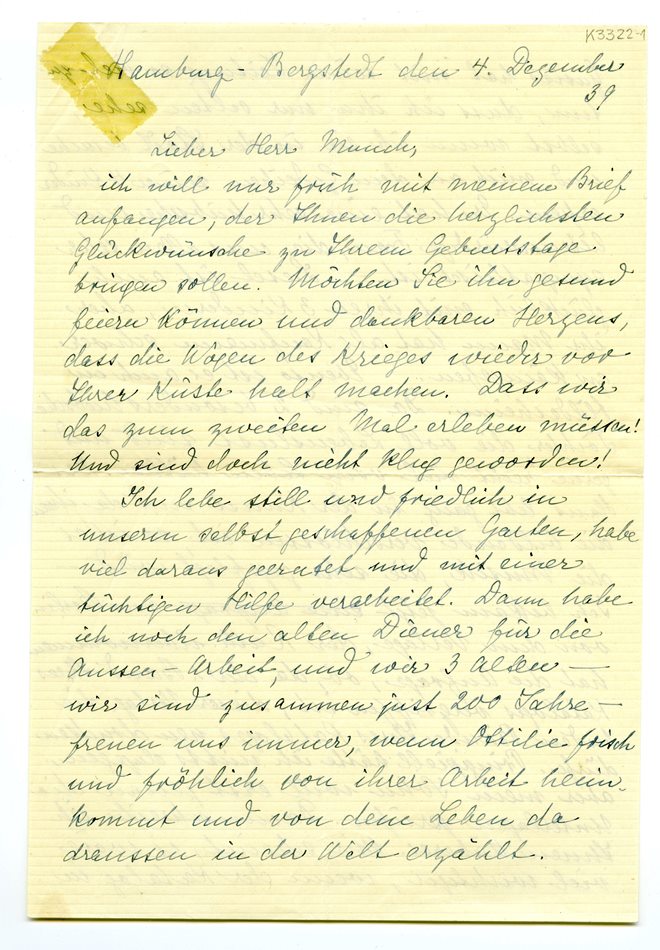 K3322-1
Hamburg - Bergstedt den 4. Dezember
39
Lieber Herr Munch,
ich will nur früh mit meinem Brief
anfangen, der Ihnen die herzlichsten
Glückwünsche zu Ihrem Geburtstage
bringen sollen. Möchten Sie ihn gesund
feiern können und dankbaren Herzens,
dass die Wogen des Krieges wieder vor
Ihrer Küste halt machen. Dass wir
das zum zweiten Mal erleben müssen!
Und sind doch nicht klug geworden!
Ich lebe still und friedlich in
unserm selbst geschaffenen Garten, habe
viel daraus geerntet und mit einer
tüchtigen Hilfe verarbeitet. Dann habe
ich noch den alten Diener für die
Aussen-Arbeit, und wir 3 Alten —
wir sind zusammen just 200 Jahre —
freuen uns immer, wenn Ottilie frisch
und fröhlich von ihrer Arbeit heim-
kommt und von dem Leben da
draussen in der Welt erzählt.